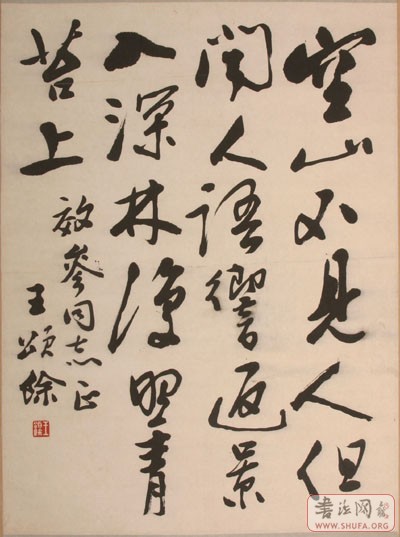 空山不见人但
闻人语響返景
入深林復照青
苔上
效參同志正
王頌餘
书法网
WWW.SHUFA.ORG